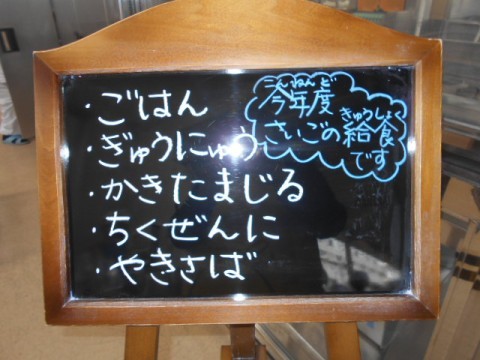 ・ごはん
・ぎゅうにゅう
・かきたまじる
・ちくぜんに
・やきさば
こんねんど
今年度
きゅうしょく
さいごの給食
です